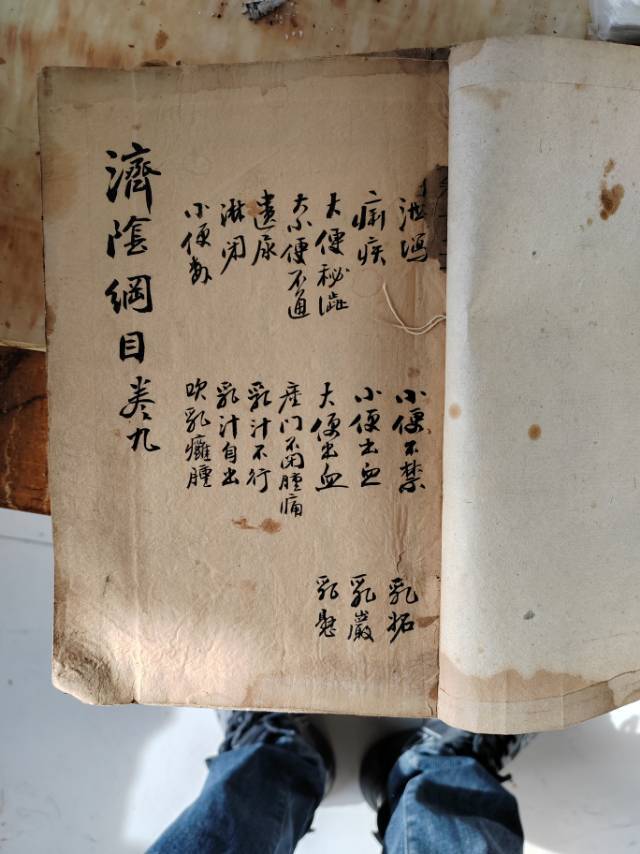 泄泻
痢疾
大便秘澁
大小便不通
遺尿
淋闭
小便数
小便不禁
小便出血
大便出血
產门不闭腫痛
乳汁不行
乳汁自出
吹乳癰腫
乳妬
乳巖
乳
濟陰綱目卷九